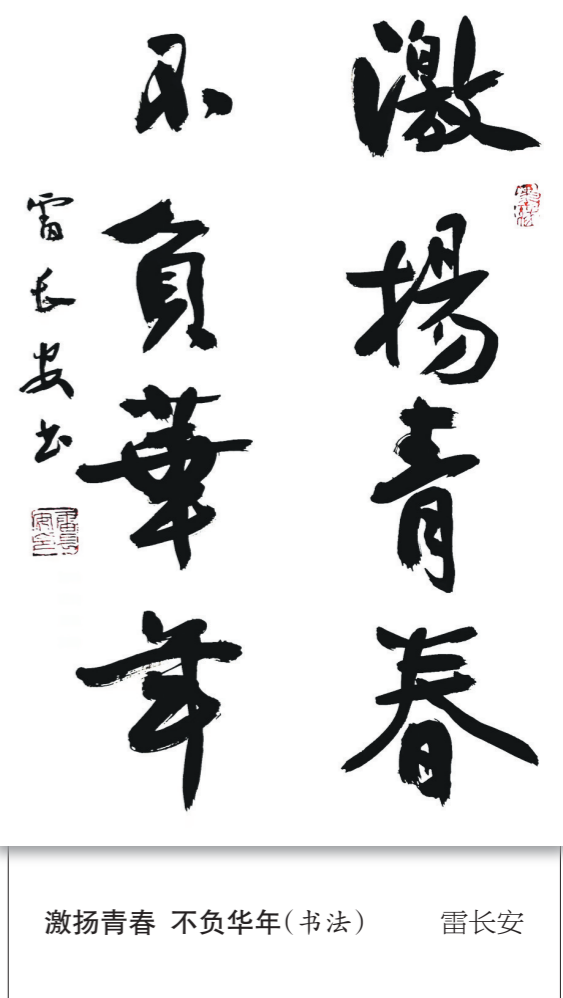 激揚青春
不負華年
雷长安书
激扬青春 不负华年(书法) 雷长安